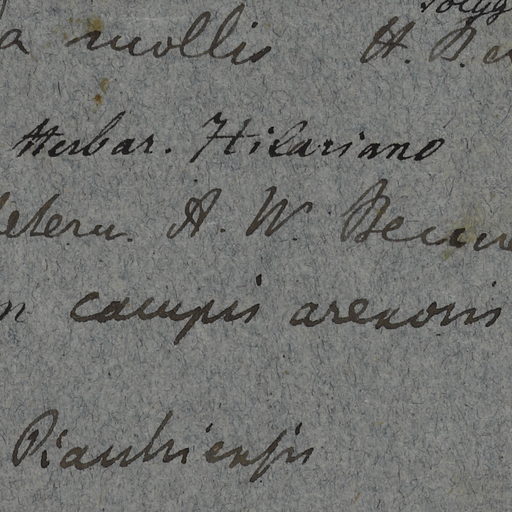 Polyg
a mollis H. B.
Herbar. Hilariano
determ. A. W. Benn
in campis arenosis
Piauhiensis